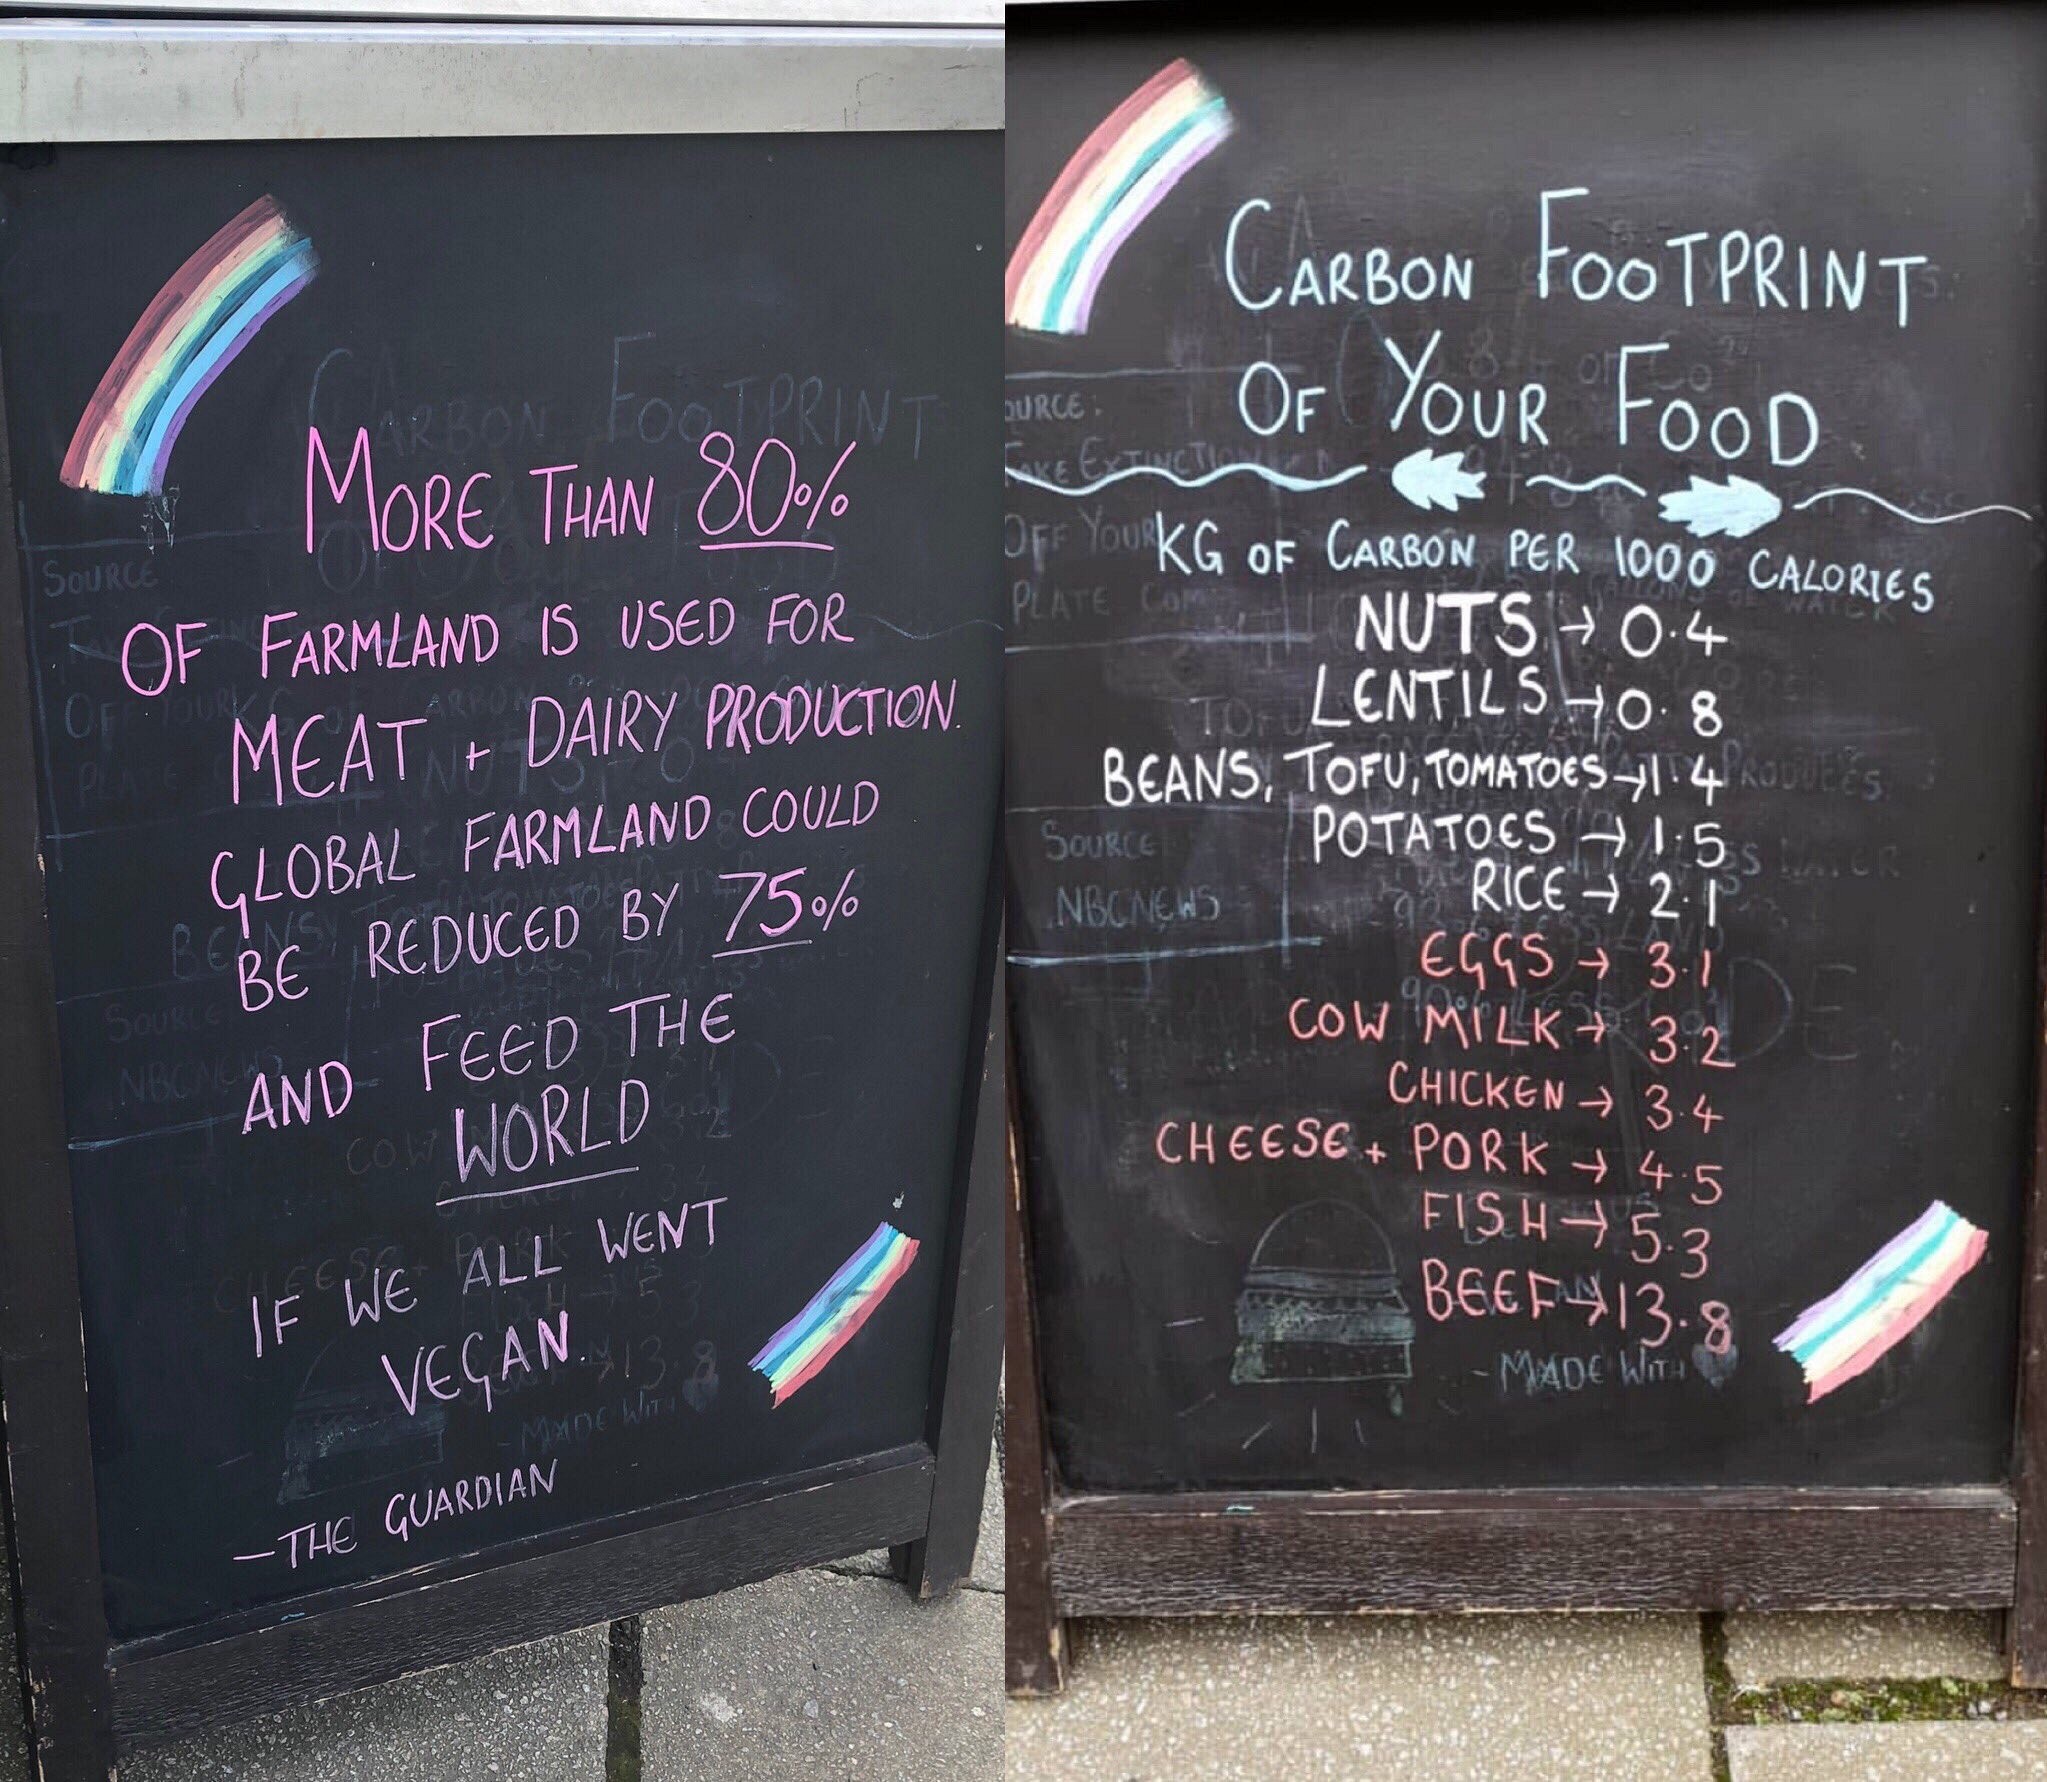 MORE THAN 80%
OF FARMLAND IS USED FOR
MEAT + DAIRY PRODUCTION.
GLOBAL FARMLAND COULD
BE REDUCED BY 75%
AND FEED THE
WORLD
IF WE ALL WENT
VEGAN.
- THE GUARDIAN
CARBON FOOTPRINT
SOURCE
OFF YOUR
PLATE
SOURCE
NBCNEWS
- MADE WITH
CARBON FOOTPRINT
OF YOUR FOOD
KG OF CARBON PER 1000 CALORIES
NUTS → 0.4
LENTILS → 0.8
BEANS, TOFU, TOMATOES → 1.4
POTATOES → 1.5
RICE → 2.1
EGGS → 3.1
COW MILK → 3.2
CHICKEN → 3.4
CHEESE + PORK → 4.5
FISH → 5.3
BEEF → 13.8
- MADE WITH
OURCE:
AKE EXTINCTION
OFF YOUR
PLATE COM
SOURCE
NBCNEWS